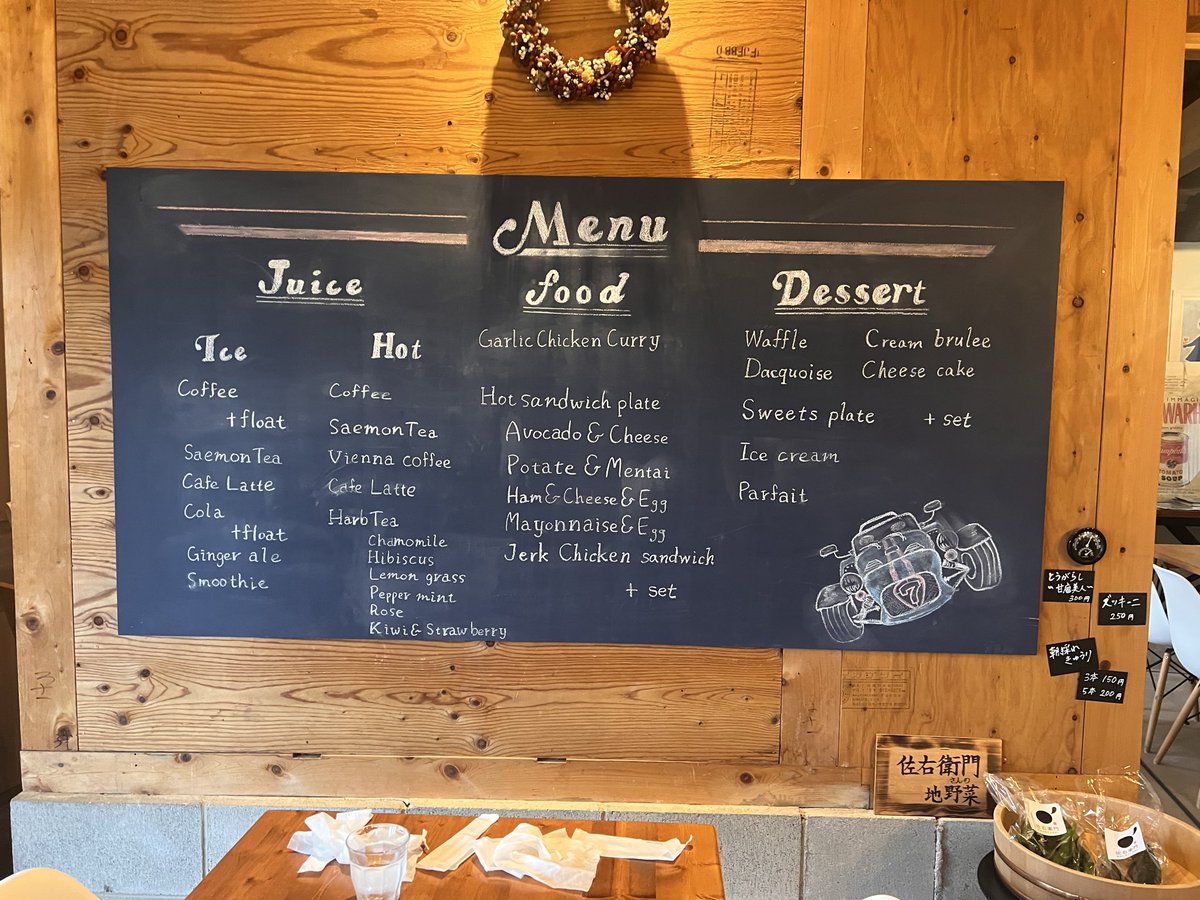 Menu
Juice
Ice
Coffee
+float
SaemonTea
Cafe Latte
Cola
+float
Ginger ale
Smoothie
Hot
Coffee
SaemonTea
Vienna coffee
Cafe Latte
HarbTea
Chamomile
Hibiscus
Lemon grass
Pepper mint
Rose
Kiwi & Strawberry
food
Garlic Chicken Curry
Hot sandwich plate
Avocado & Cheese
Potate & Mentai
Ham & Cheese & Egg
Mayonnaise & Egg
Jerk Chicken sandwich
+ set
Dessert
Waffle Cream brulee
Dacquoise Cheese cake
Sweets plate + set
Ice cream
Parfait
7
とうがらし
~甘唐美人~
300円
ズッキーニ
250円
朝採れ
きゅうり
3本 150円
5本 200円
佐右衛門
さんの
地野菜
WAR
TOMATO
SOUP